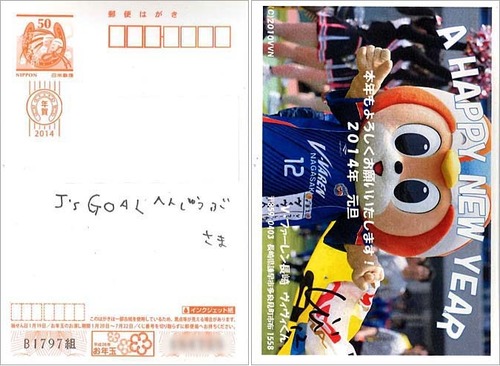 郵便はがき
50
NIPPON
日本郵便
年賀
2014
J's GOAL へんしゅうぶ
さま
インクジェット紙
B1797組
お年玉
(C)2010VVN
A HAPPY NEW YEAR
本年もよろしくお願いいたします!
2014年 元旦
V・ファーレン長崎 ヴィヴィくん
V・VAREN
NAGASAKI
12